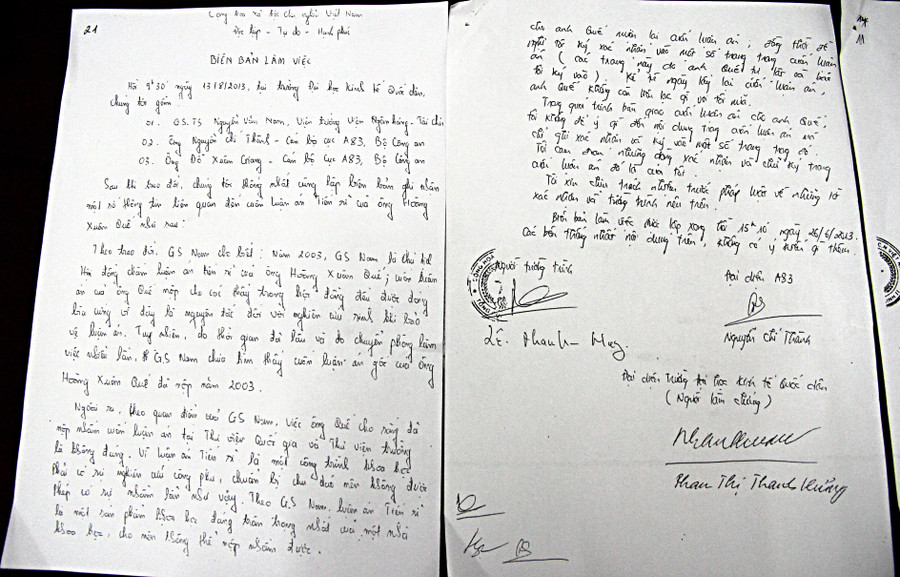 21
Cộng hòa xã hội chủ nghĩa Việt Nam
Độc lập - Tự do - Hạnh phúc
BIÊN BẢN LÀM VIỆC
Hồi 9h30 ngày 13/8/2013, tại trường Đại học Kinh tế Quốc dân,
Chúng tôi gồm:
01. GS.TS Nguyễn Văn Nam, Viện trưởng Viện Ngân hàng - Tài chính
02. Ông Nguyễn Chí Thành - Cán bộ cục A83, Bộ Công an
03. Ông Đỗ Xuân Giang - Cán bộ cục A83, Bộ Công an
Sau khi trao đổi, chúng tôi thống nhất cùng lập biên bản ghi nhận
một số thông tin liên quan đến cuốn luận án Tiến sĩ của ông Hoàng
Xuân Quế như sau:
Theo trao đổi, GS Nam cho biết: Năm 2003, GS Nam là chủ tịch
Hội đồng chấm luận án tiến sĩ của ông Hoàng Xuân Quế; cuốn luận
án của ông Quế nộp cho các thầy trong hội đồng đều được đóng
bìa cứng vì đây là nguyên tắc đối với nghiên cứu sinh khi bảo
vệ luận án. Tuy nhiên, do thời gian đã lâu và do chuyển phòng làm
việc nhiều lần, GS Nam chưa tìm thấy cuốn luận án gốc của ông
Hoàng Xuân Quế đã nộp năm 2003.
Ngoài ra, theo quan điểm của GS Nam, việc ông Quế cho rằng đã
nộp nhầm cuốn luận án tại Thư viện Quốc gia và Thư viện trường
là không đúng. Vì luận án Tiến sĩ là một công trình khoa học
phải có sự nghiên cứu công phu, chuẩn bị chu đáo nên không được
phép có sự nhầm lẫn như vậy. Theo GS Nam, luận án Tiến sĩ
là một sản phẩm khoa học đáng trân trọng nhất của một nhà
khoa học, cho nên không thể nộp nhầm được.
cho anh Quế mượn lại cuốn luận án, đồng thời đề
nghị tôi ký xác nhận vào một số trang trong cuốn luận
án (các trang này do anh Quế tự lật và bảo
tôi ký vào). Kể từ ngày lấy lại cuốn luận án,
anh Quế không còn liên lạc gì với tôi nữa.
Trong quá trình bàn giao cuốn luận án cho anh Quế,
tôi không để ý gì đến nội dung trong cuốn luận án mà
chỉ ghi xác nhận và ký vào một số trang trong đó.
Tôi cam đoan những dòng xác nhận và chữ ký trong
cuốn luận án đó là của tôi.
Tôi xin chịu trách nhiệm trước pháp luật về những lời
xác nhận và tường trình nêu trên.
Biên bản làm việc được lập xong lúc 15h10' ngày 26/6/2013.
Các bên thống nhất nội dung trên, không có ý kiến gì thêm.
Người tường trình
Đại diện A83
Nguyễn Chí Thành
Đại diện trường Đại học Kinh tế Quốc dân
(Người làm chứng)
Phan Thị Thanh Hương
11